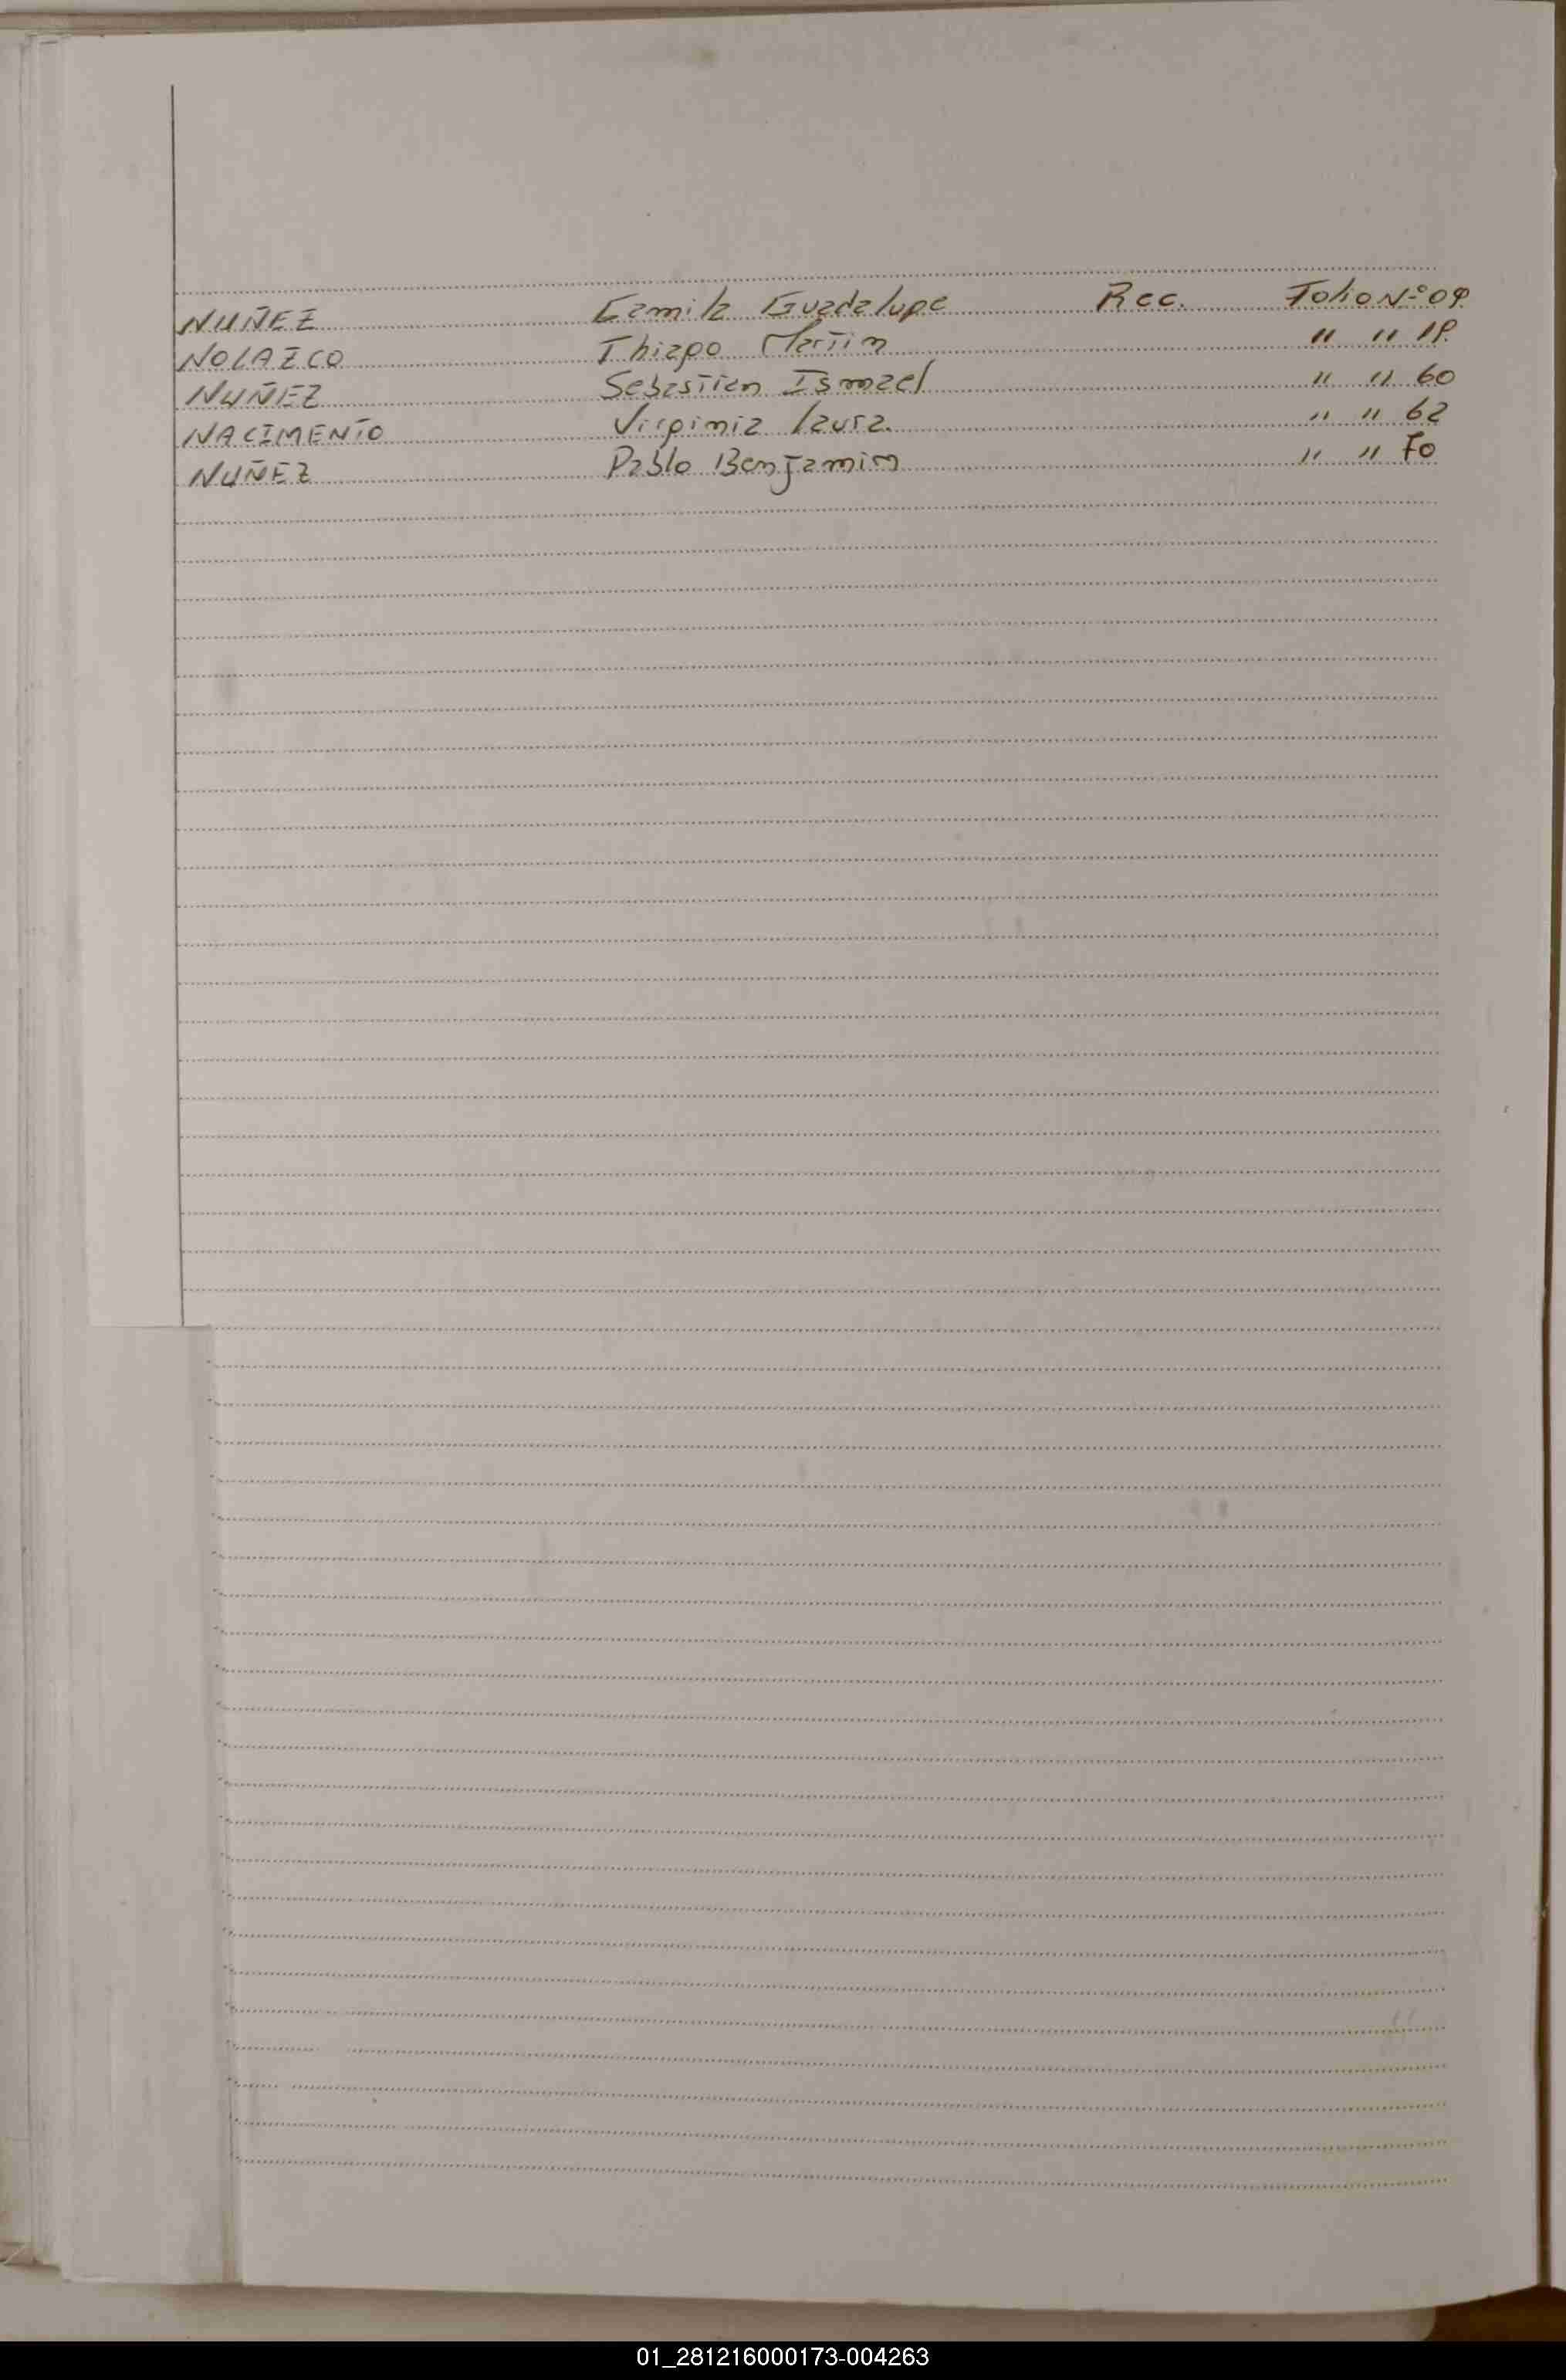 NUÑEZ Camila Guadalupe Rec. Folio Nº 09
NOLAZCO Thiago Martin " " 19
NUÑEZ Sebastian Ismael " " 60
NACIMENTO Virginia Laura " " 62
NUÑEZ Pablo Benjamin " " 70
01_281216000173-004263